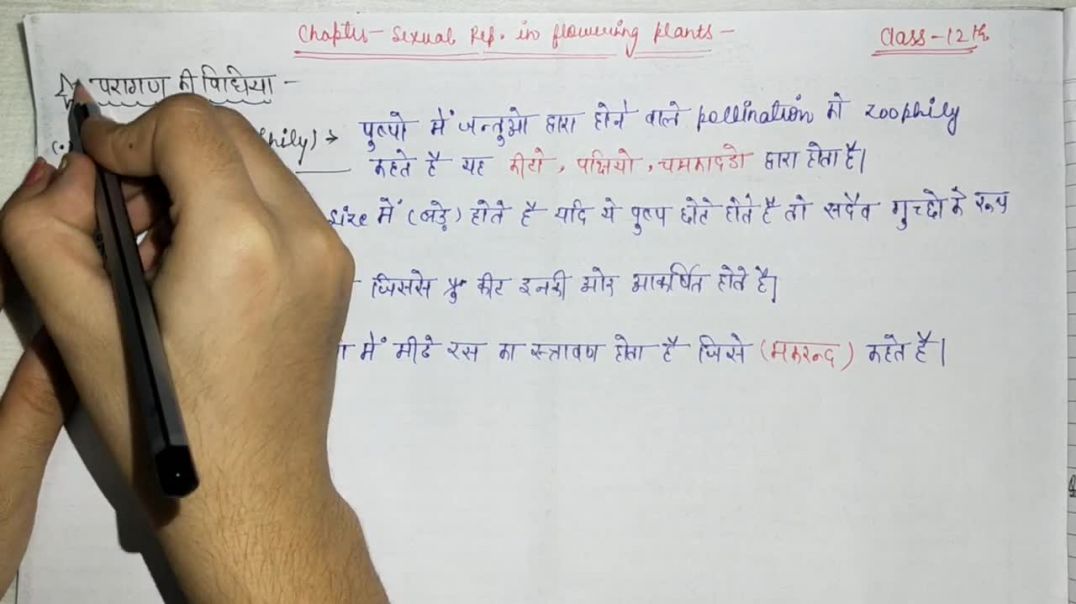 Chapter - Sexual Rep. in flowering plants -
Class - 12th
परागण की विधिया -
hily) → पुष्पो में जन्तुओ द्वारा होने वाले pollination को zoophily
कहते है यह कीटो, पक्षियो, चमकादडो द्वारा होता है।
size में (बड़े) होते है यदि ये पुष्प छोटे होते है तो सदैव गुच्छो के रूप
जिससे कीट इनकी ओर आकर्षित होते है।
में मीठे रस का स्त्रावण होता है जिसे (मकरन्द) कहते है।